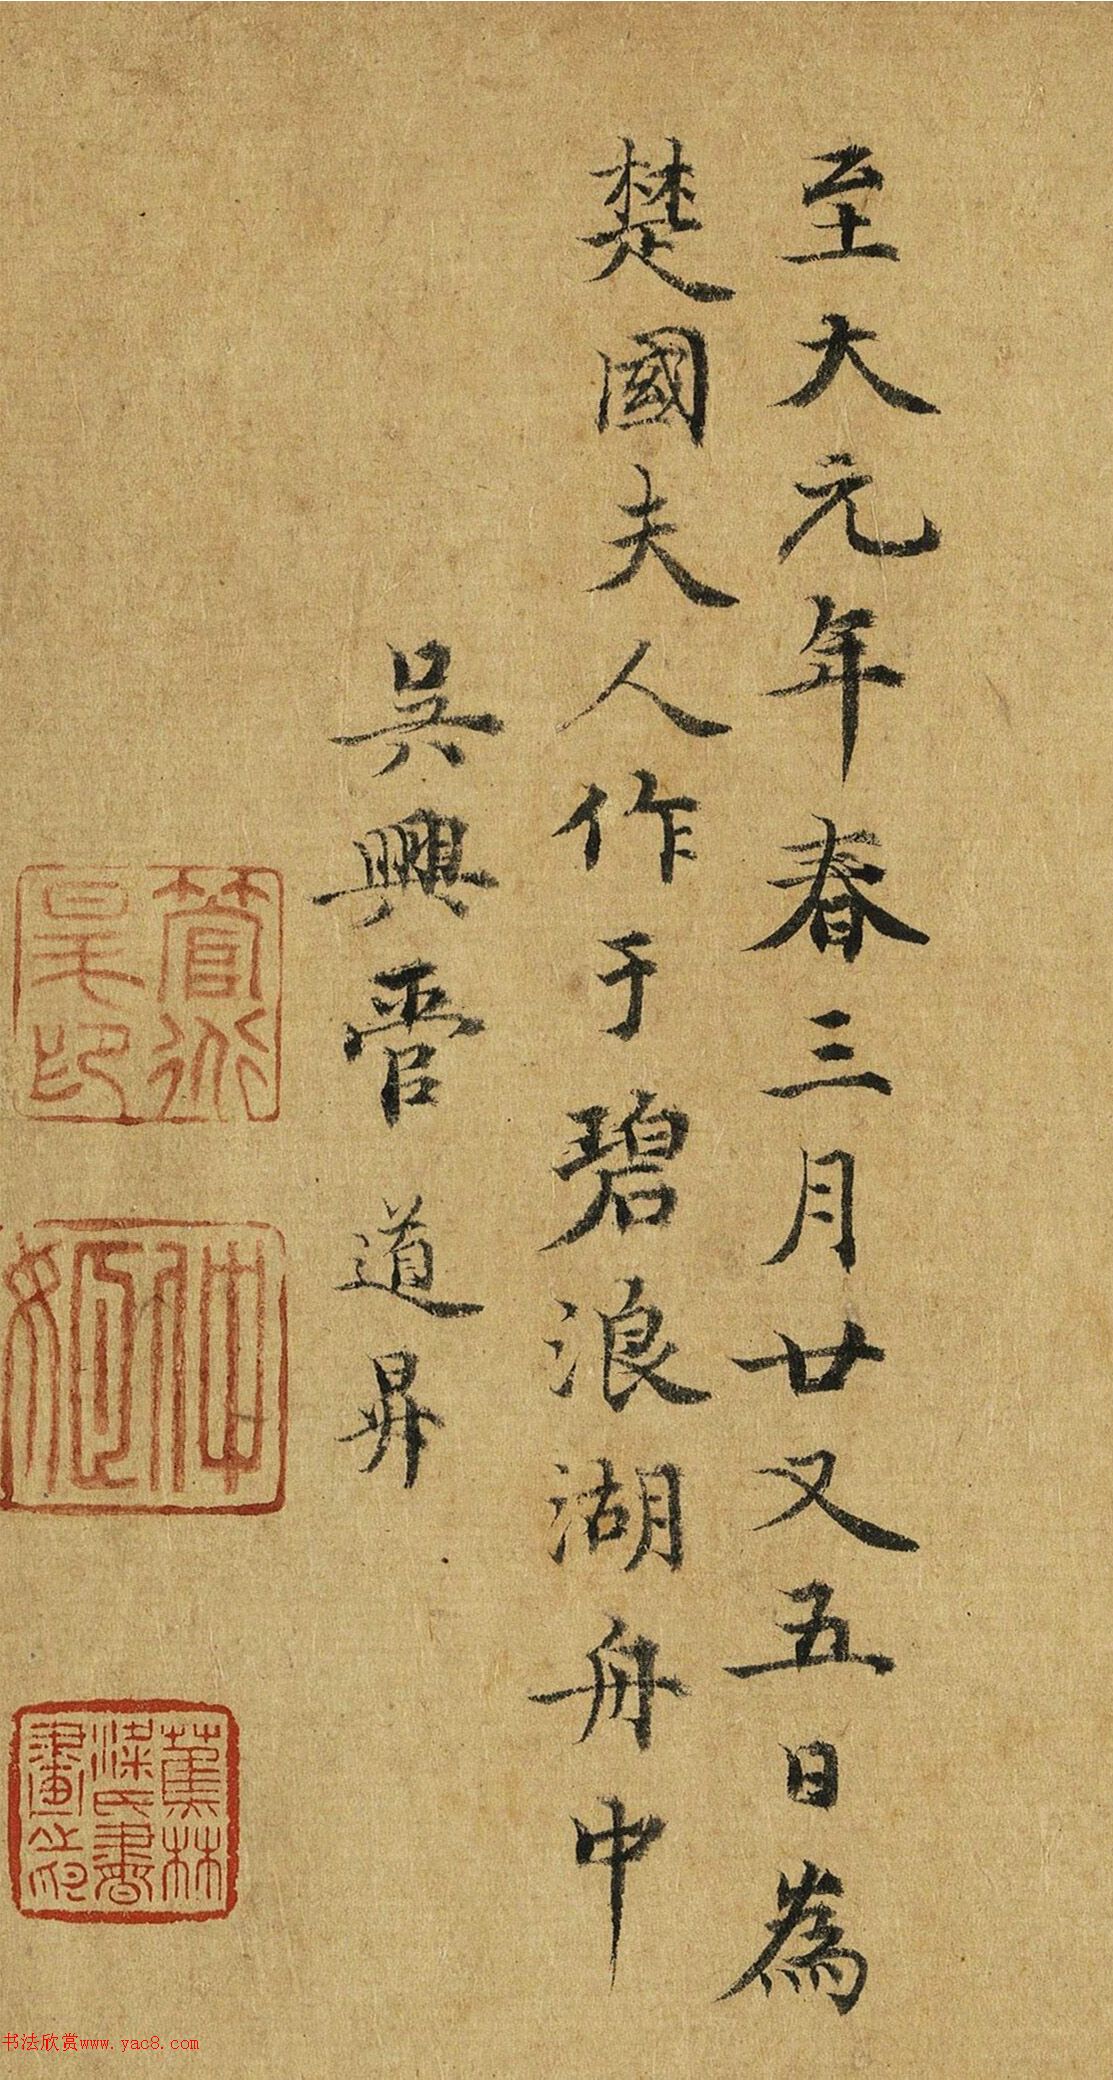 至大元年春三月廿又五日為
楚國夫人作于碧浪湖舟中
吳興管道昇
仲姬
蕉林
梁氏書
畫之印
书法欣赏www.yac8.com